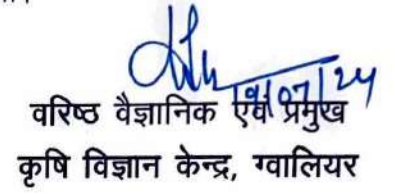 19/07/24
वरिष्ठ वैज्ञानिक एवं प्रमुख
कृषि विज्ञान केन्द्र, ग्वालियर